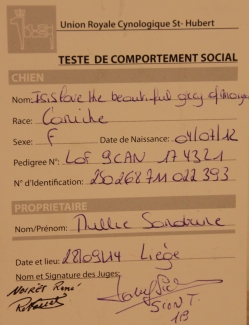 Union Royale Cynologique St- Hubert
TESTE DE COMPORTEMENT SOCIAL
CHIEN
Nom: the beautiful grey
Race: Caniche
Sexe: F Date de Naissance: 04/07/12
Pedigree N°: LOF 9CAN 174321
N° d'Identification: 250268711022393
PROPRIETAIRE
Nom/Prénom: Sandrine
Date et lieu: 28/09/14 Liège
Nom et Signature des Juges:
NOIRET René